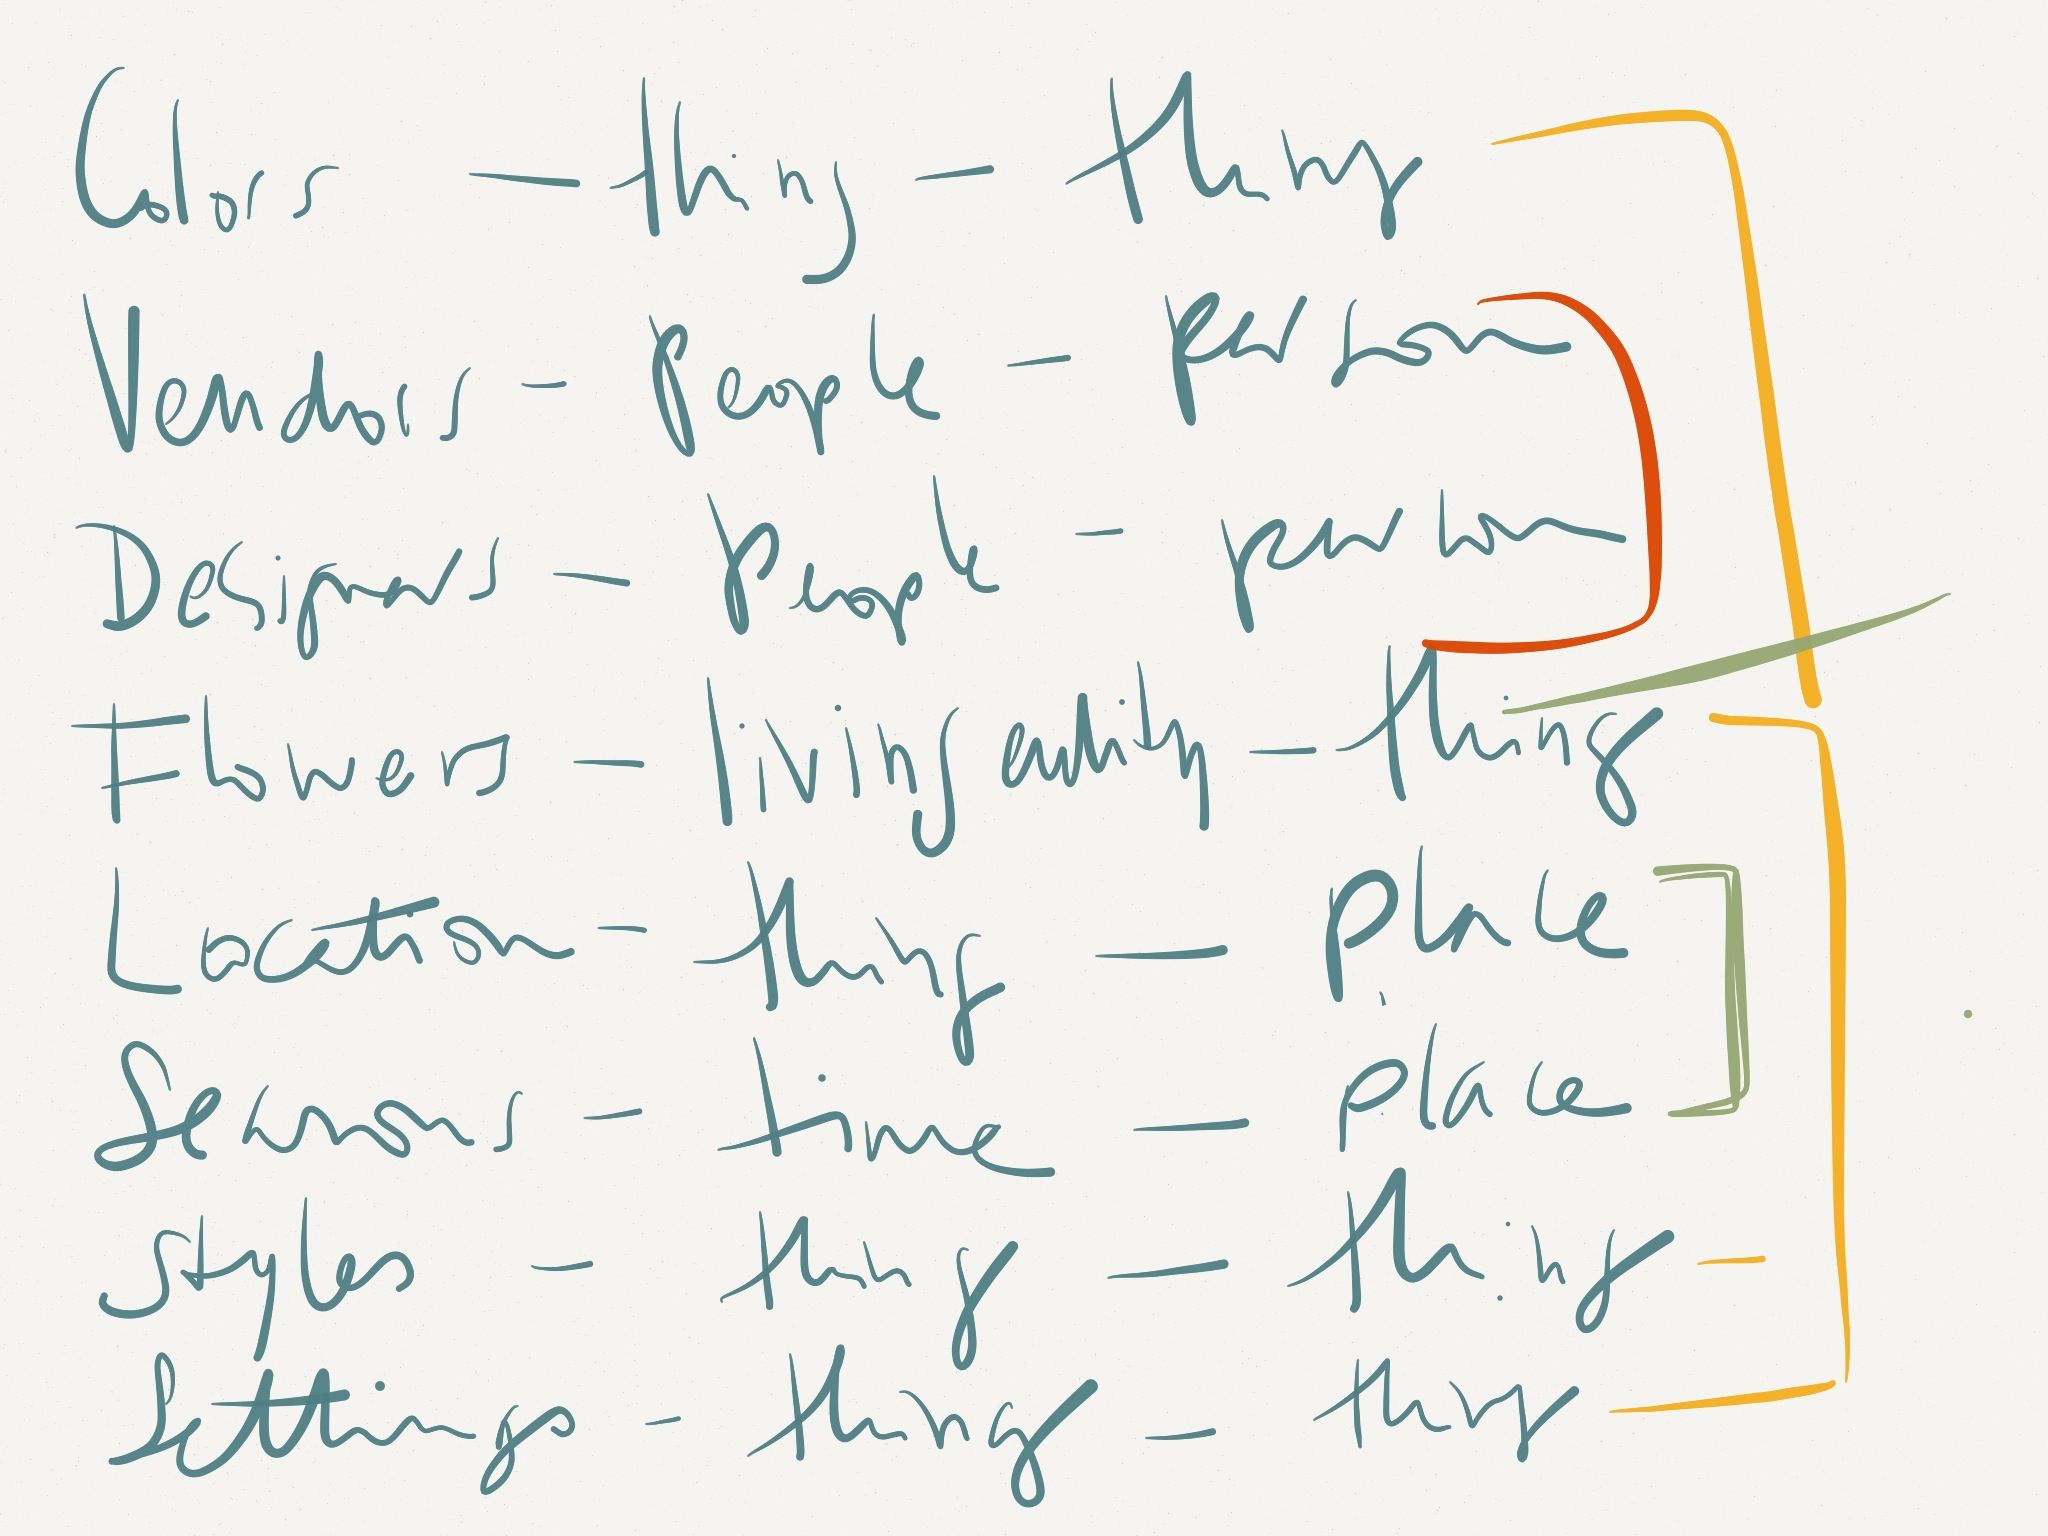 Colors — thing — thing
Vendors — People — person
Designers — People — person
Flowers — living entity — thing
Location — thing — place
Seasons — time — place
Styles — thing — thing
Settings — thing — thing